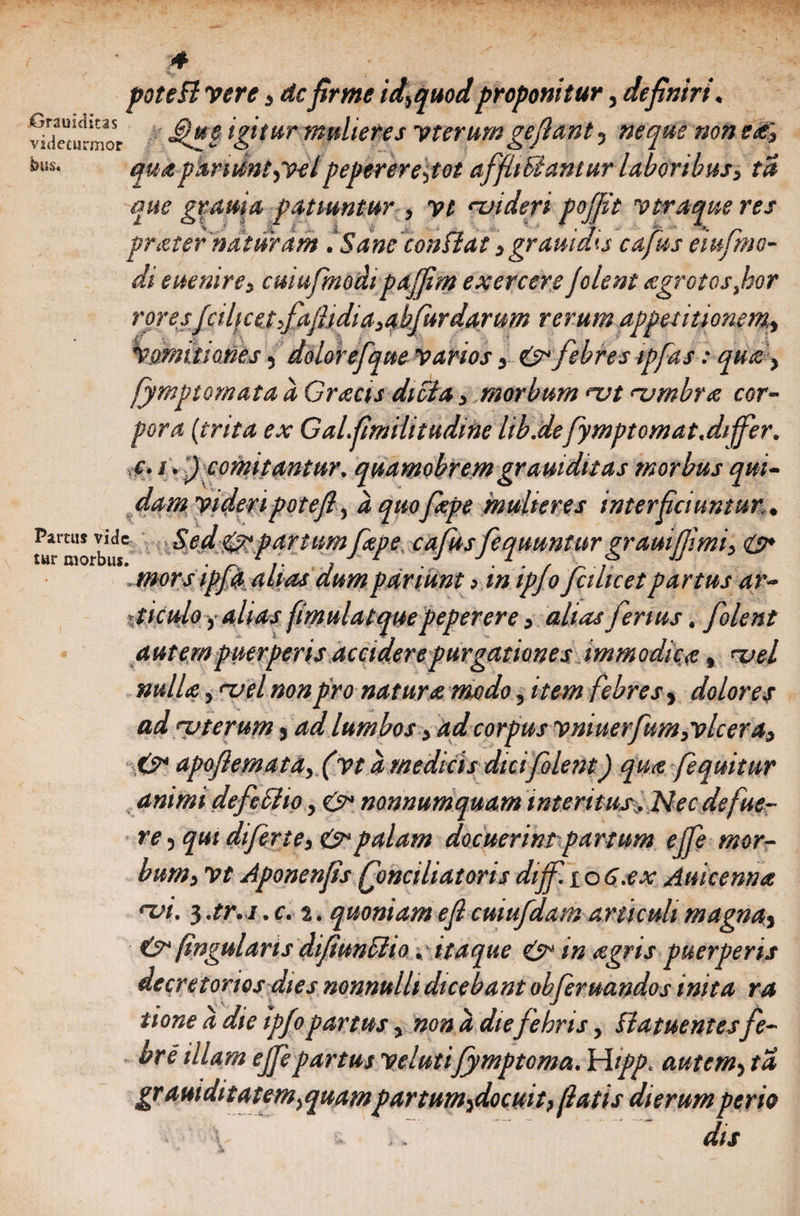 4
poteſt vere, ac firme id, quod proponitur, definiri.
Grauiditas
videtur mor
bus.
Quę igitur mulieres vterum geſtant, neque non eæ,
quæ pariunt, vel peperere, tot afflictantur laboribus, tã
que grauia patiuntur, vt videri poſſit vtraque res
præter naturam. Sane conſtat, grauidis caſus eiuſmo-
di euenire, cuiuſmodi paſſim exercere ſolent ægrotos, hor
rores ſcilicet, faſtidia, abſurdarum rerum appetitionem,
vomitiones, doloreſque varios, & febres ipſas: quæ,
ſymptomata à Græcis dicta, morbum vt vmbræ cor-
pora (trita ex Gal. ſimilitudine lib. de ſymptomat. differ.
c. 1.) comitantur. quamobrem grauiditas morbus qui-
dam videri poteſt, à quo ſæpe mulieres interficiuntur.
Partus vide
tur morbus.
Sed & partum ſæpe caſus ſequuntur grauiſſimi, &
mors ipſa alias dum pariunt, in ipſo ſcilicet partus ar-
ticulo, alias ſimulatque peperere, alias ſerius. ſolent
autem puerperis accidere purgationes immodicæ, vel
nullæ, vel non pro naturæ modo, item febres, dolores
ad vterum, ad lumbos, ad corpus vniuerſum, vlcera,
& apoſtemata, (vt à medicis dici ſolent) quæ ſequitur
animi defectio, & nonnumquam interitus. Nec defue-
re, qui diſerte, & palam docuerint partum eſſe mor-
bum, vt Aponenſis Conciliatoris diff. 106. ex Auicennæ
vi. 3. tr. 1. c. 2. quoniam eſt cuiuſdam articuli magna,
& ſingularis diſiunctio. itaque & in ægris puerperis
decretorios dies nonnulli dicebant obſeruandos inita ra
tione à die ipſo partus, non à die febris, ſtatuentes fe-
brẽ illam eſſe partus veluti ſymptoma. Hipp. autem, tã
grauiditatem, quam partum, docuit, ſtatis dierum perio
dis